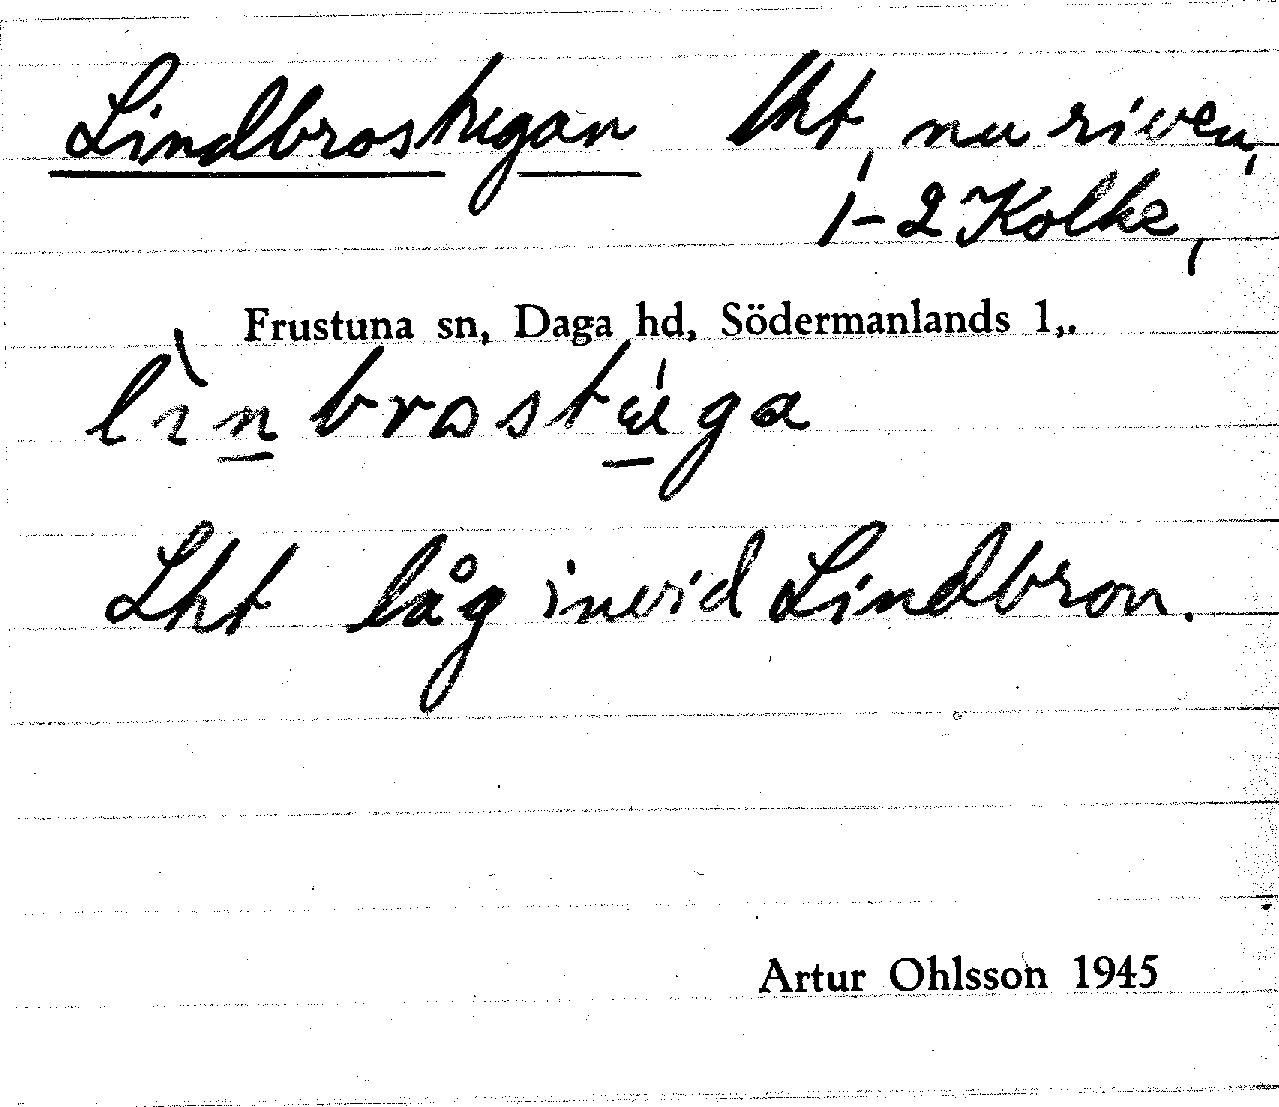 Lindbrostugan lht, nu riven,
1-2 Kolke,
Frustuna sn, Daga hd, Södermanlands l,.
Lht låg invid Lindbron.
Artur Ohlsson 1945